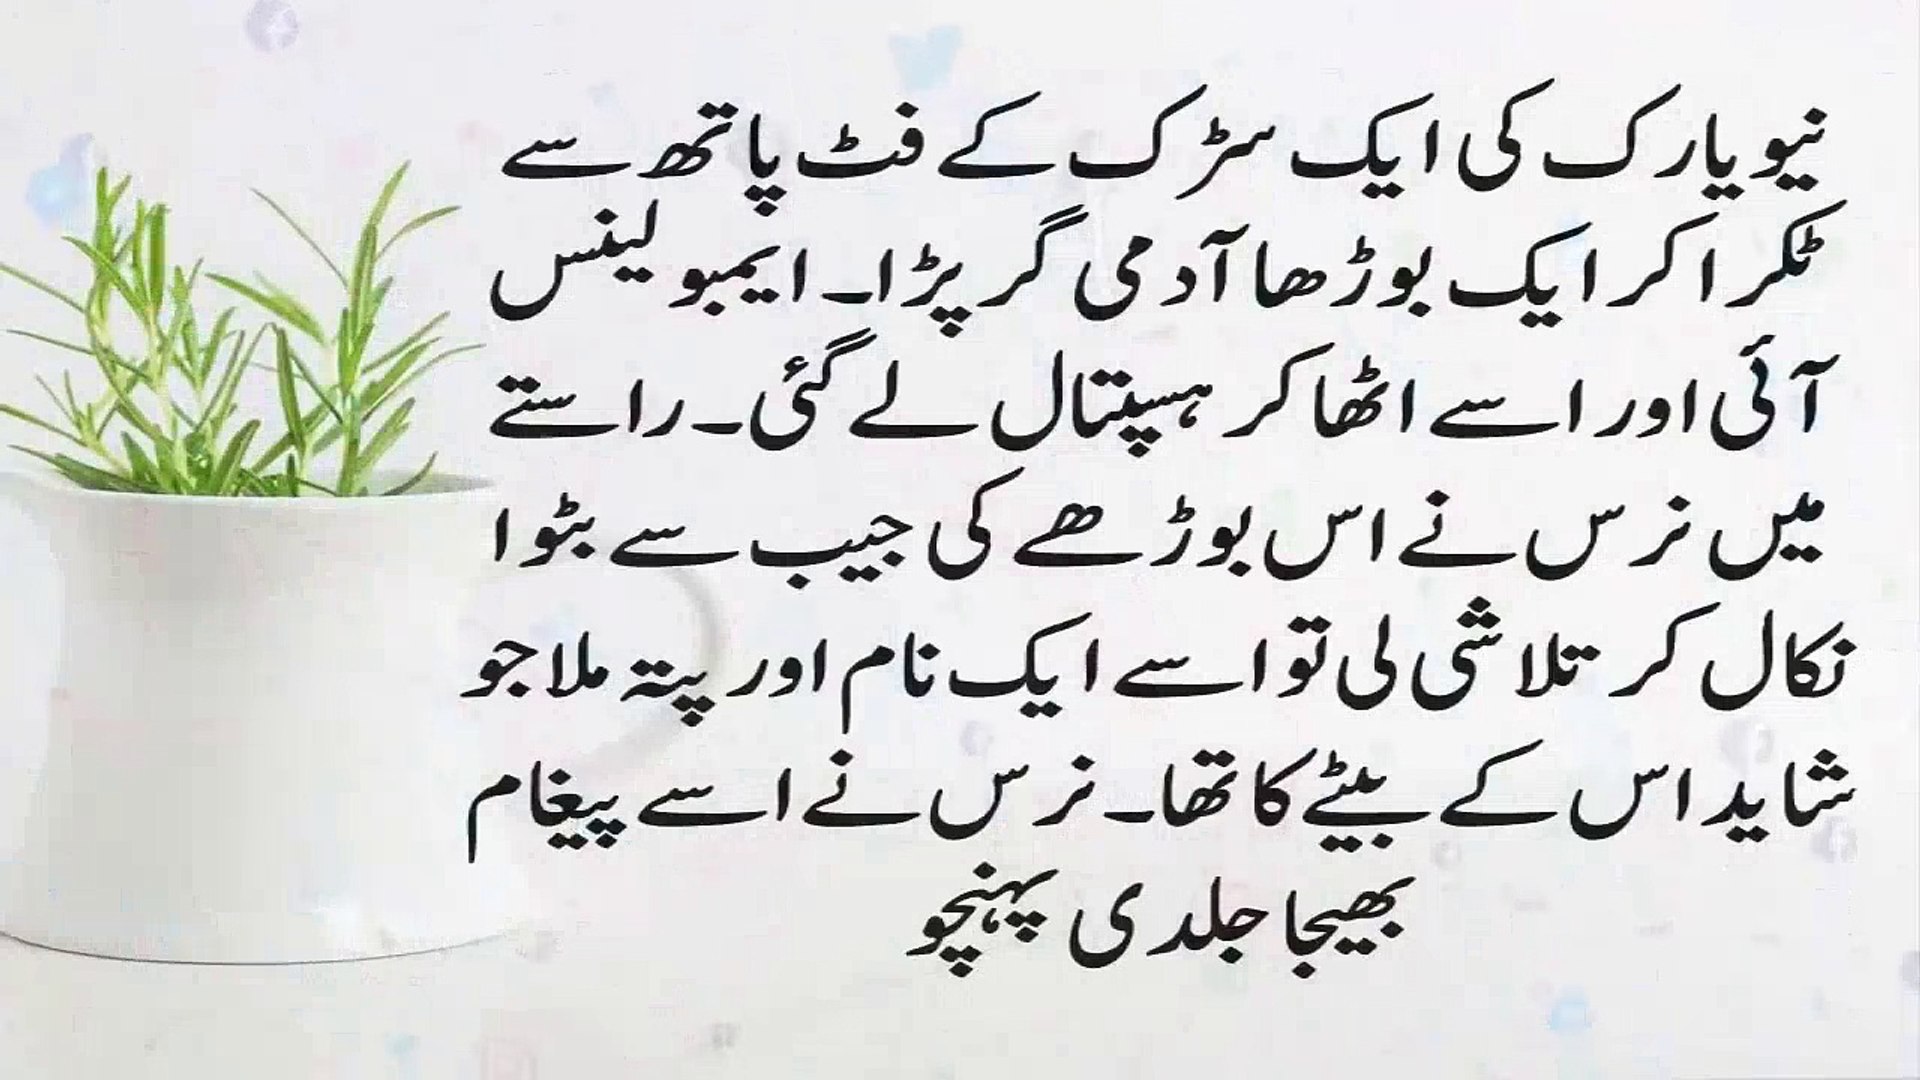 نیویارک کی ایک سڑک کے فٹ پاتھ سے
ٹکرا کر ایک بوڑھا آدمی گر پڑا۔ ایمبولینس
آئی اور اسے اٹھا کر ہسپتال لے گئی۔ راستے
میں نرس نے اس بوڑھے کی جیب سے بٹوا
نکال کر تلاشی لی تو اسے ایک نام اور پتہ ملا جو
شاید اس کے بیٹے کا تھا۔ نرس نے اسے پیغام
بھیجا جلدی پہنچو